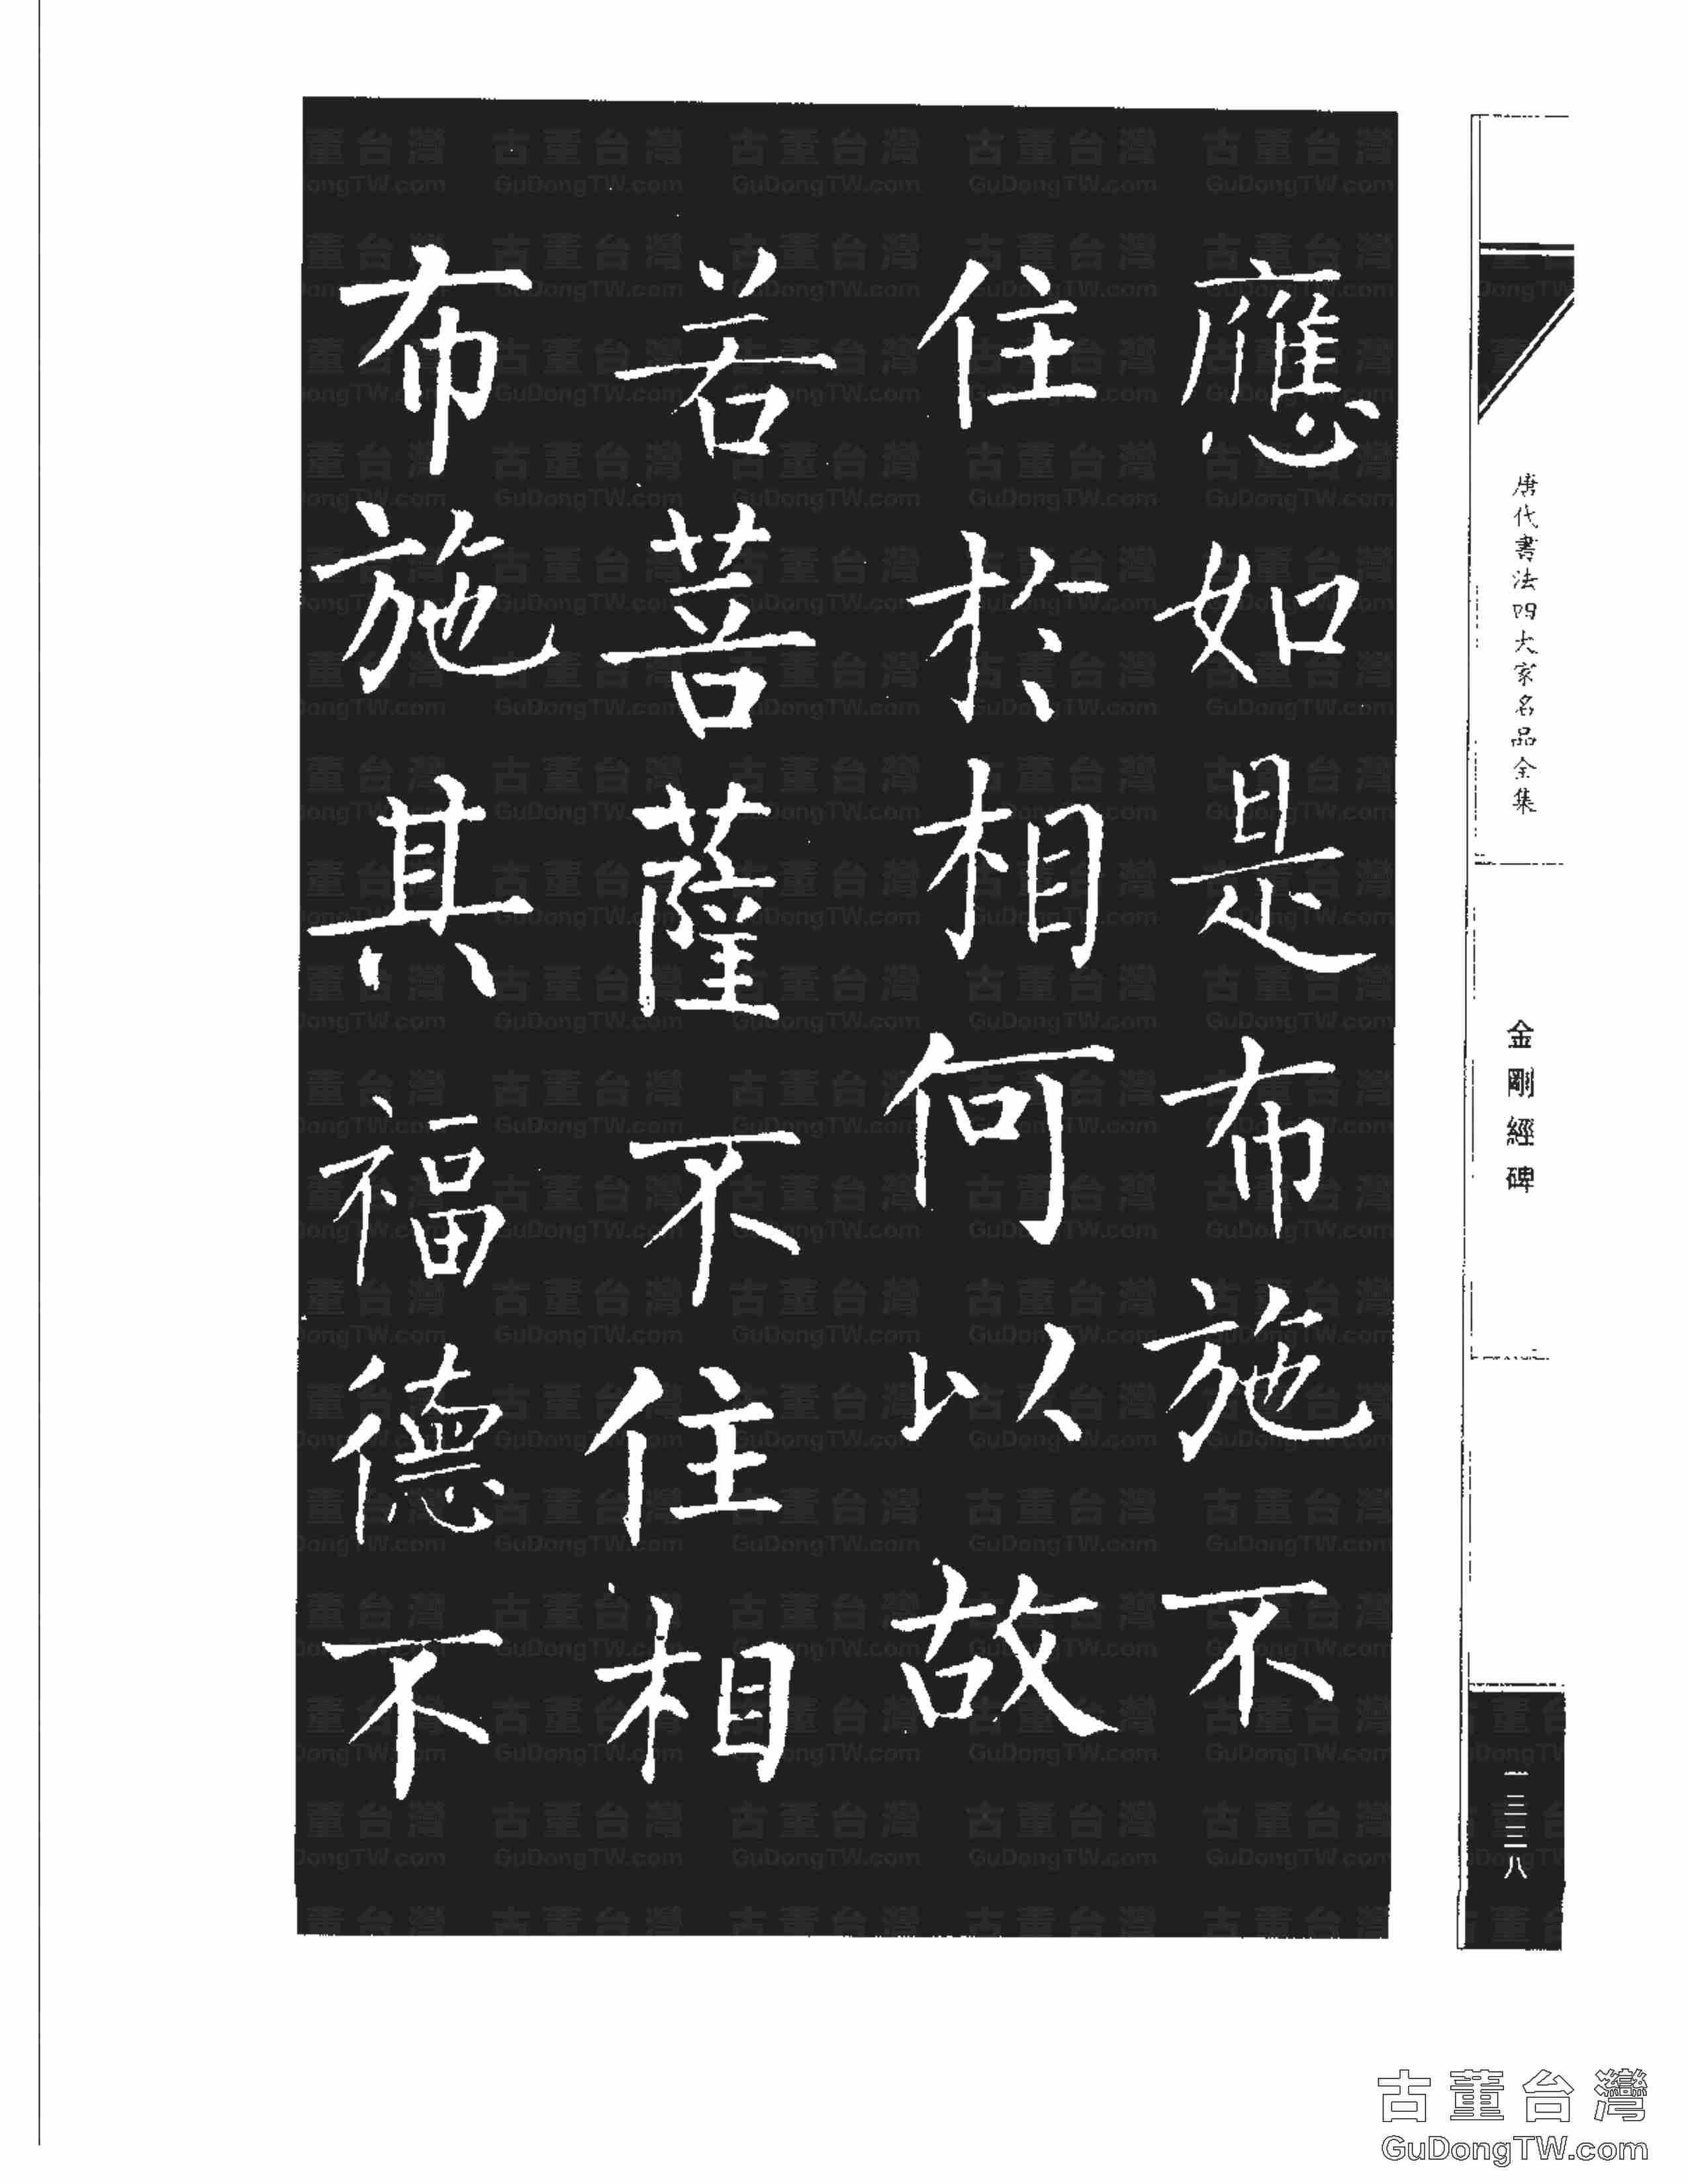 應如是布施不
住於相何以故
若菩薩不住相
布施其福德不
唐代書法四大家名品全集
金剛經碑
一三三八
古董台灣
GuDongTW.com